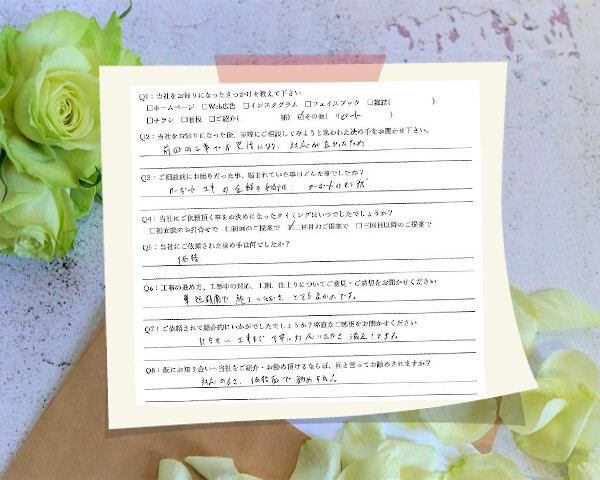 Q1：当社をお知りになったきっかけを教えて下さい
□ホームページ □Web広告 □インスタグラム □フェイスブック □雑誌( )
□チラシ □看板 □ご紹介( 様) ☑その他( リピート )
Q2：当社をお知りになった後、実際にご相談してみようと思われた決め手をお聞かせ下さい。
前回の工事でお世話になり、対応が良かったため
Q3：ご相談前にお困りだった事、悩まれていた事はどんな事でしたか？
カーポート工事の金額
Q4：当社にご依頼頂く事をお決めになったタイミングはいつでしたでしょうか？
□初面談のお打合せで □初回のご提案で ☑二回目のご提案で □三回目以降のご提案で
Q5：当社にご依頼された決め手は何でしたか？
価格
Q6：工事の進め方、工事中の対応、工期、仕上りについてご意見・ご感想をお聞かせください
短期間で施工いただき とても良かったです。
Q7：ご依頼されて総合的にいかがでしたでしょうか？率直なご感想をお聞かせください
打合せ〜工事まで丁寧に対応いただき 満足してます。
Q8：仮にお知り合いへ当社をご紹介・お勧め頂けるならば、何と言ってお勧めされますか？
対応の良さ、価格面で勧めする。